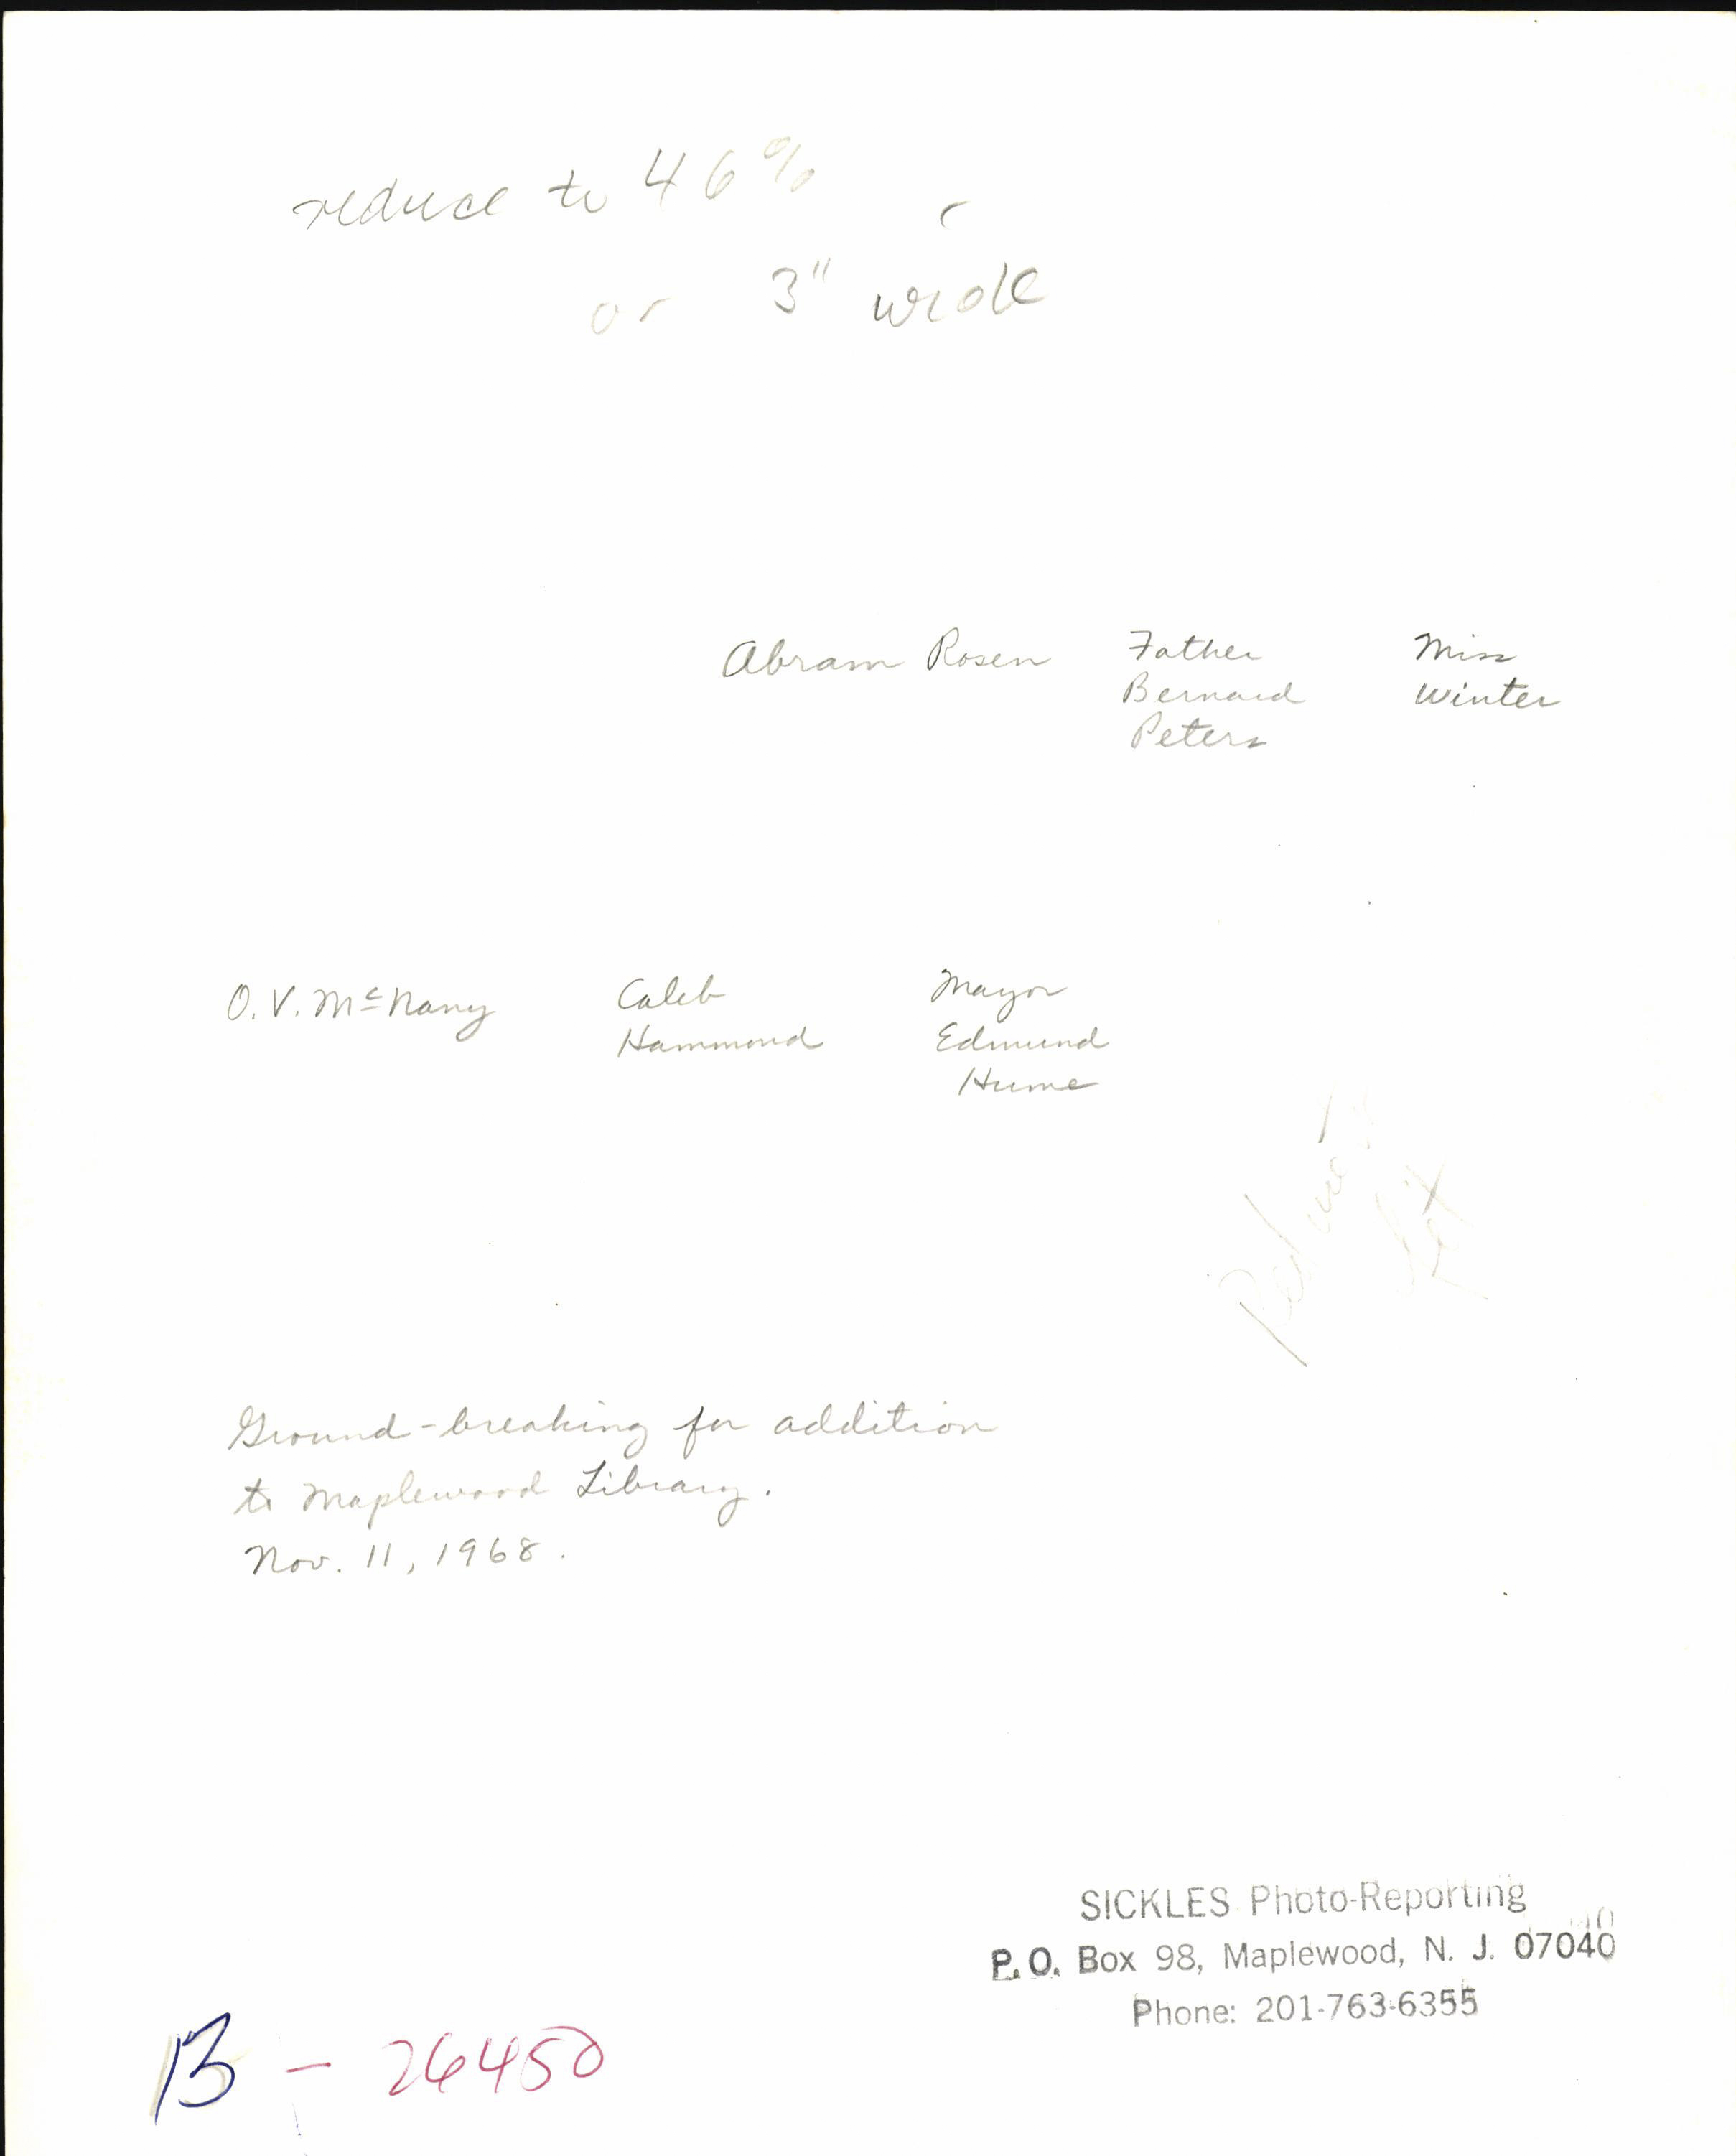 reduce to 46%
or 3" wide
Abram Rosen
Father
Bernard
Peters
Miss
Winter
O. V. McNany
Caleb
Hammond
Mayor
Edmund
Hume
Ground-breaking for addition
to Maplewood Library.
Nov. 11, 1968.
SICKLES Photo-Reporting
P.O. Box 98, Maplewood, N. J. 07040
Phone: 201-763-6355
B - 26450